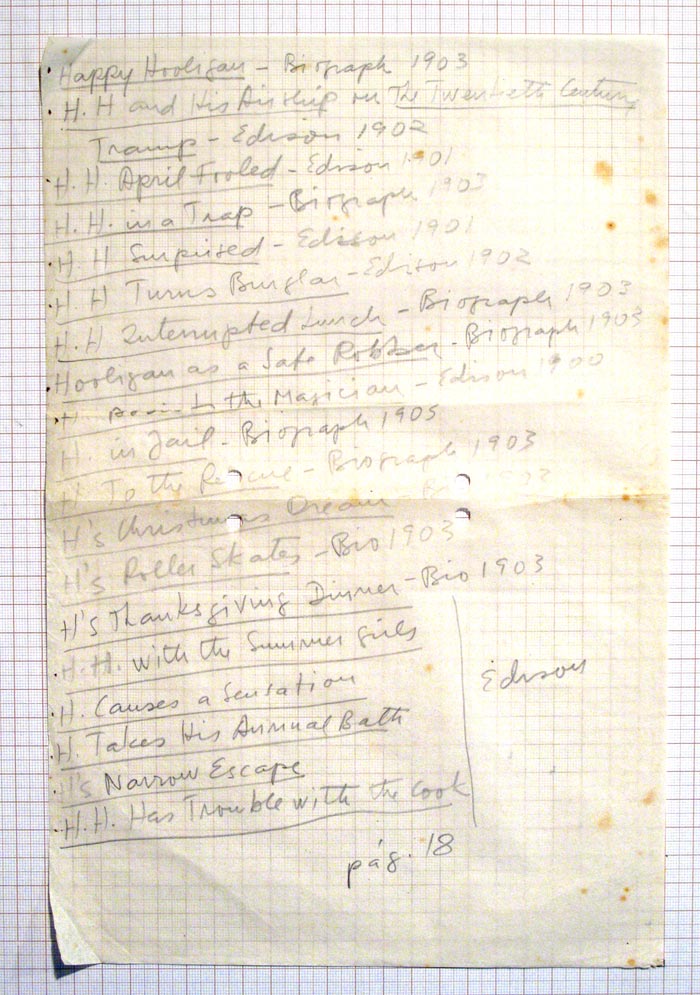 Happy Hooligan - Biograph 1903
H.H and His Airship or The Twentieth Century
Tramp - Edison 1902
H.H. April Fooled - Edison 1901
H.H. in a Trap - Biograph 1903
H.H Surprised - Edison 1901
H.H Turns Burglar - Edison 1902
H.H Interrupted Lunch - Biograph 1903
Hooligan as a Safe Robber - Biograph 1903
H. the Magician - Edison 1900
H. in Jail - Biograph 1903
H To the Rescue - Biograph 1903
H's Christmas Dream -
H's Roller Skates - Bio 1903
H's Thanksgiving Dinner - Bio 1903
H.H. with the Summer girls
H. Causes a Sensation
Edison
H. Takes His Annual Bath
H's Narrow Escape
H.H. Has Trouble with the Cook
pág. 18